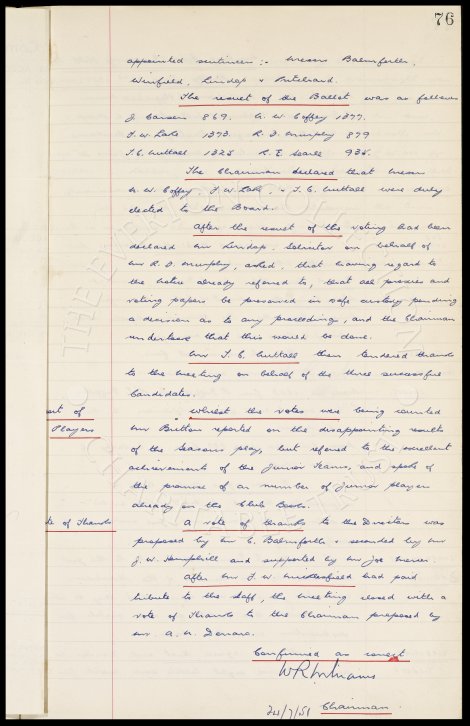 76
appointed scrutineers :- Messrs Balmforth,
Winfield, Lindop & Pritchard.
The result of the Ballot was as follows
J. Carson 869. A. W. Coffey 1377.
F. W. Lake 1373. R. D. Murphy 879
T. C. Nuttall 1325 R. E. Searle 935.
The Chairman declared that Messrs
A. W. Coffey, F. W. Lake, & T. C. Nuttall were duly
elected to the Board.
After the result of the voting had been
declared Mr Lindop, Solicitor on behalf of
Mr R. D. Murphy, asked, that having regard to
the notice already referred to, that all proxies and
voting papers be preserved in safe custody pending
a decision as to any proceedings, and the Chairman
undertook that this would be done.
Mr T. C. Nuttall then tendered thanks
to the meeting on behalf of the three successful
Candidates.
ort of
Players
Whilst the votes were being counted
Mr Britton reported on the disappointing results
of the Seasons play, but refered to the excellent
achievements of the Junior Teams, and spoke of
the promise of a number of Junior players
already on the Clubs Books.
te of Thanks
A vote of thanks to the Directors was
proposed by Mr C. Balmforth & seconded by Mr
J. W. Hemphill and supported by Mr Joe Mercer.
After Mr F. W. Micklesfield had paid
tribute to the staff, the meeting closed with a
vote of thanks to the Chairman proposed by
Mr. A. H.
Confirmed as correct
W R Williams
Chairman.
THE EVERTON COLLECTION
CHARITABLE